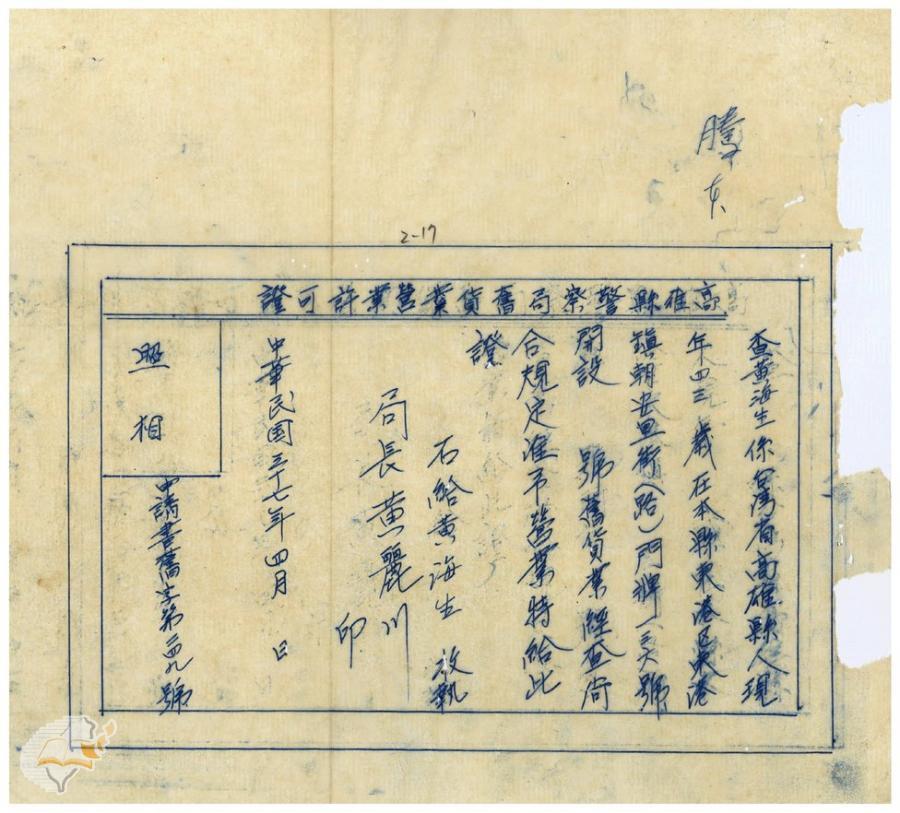 2-17
高雄縣警察局舊貨業營業許可證
查黃海生係台灣省高雄縣人現
年四三歲在本縣東港区東港
鎮朝安里街(路)門牌一三六號
開設 號舊貨業經查尚
合規定准予營業特給此
證
右給黃海生 收執
局長黃麗川
印
中華民国三十七年四月 日
照相
申請書舊字第二四九號